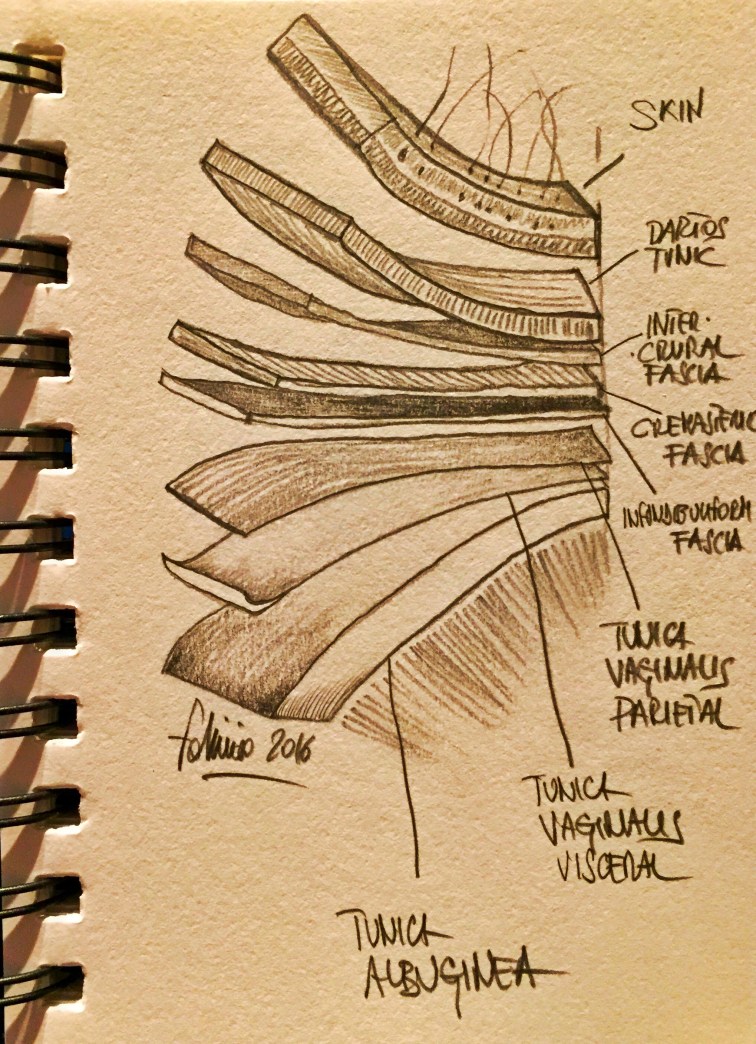 SKIN
DARTOS
TUNIC
INTER-
CRURAL
FASCIA
CREMASTERIC
FASCIA
INFUNDIBULIFORM
FASCIA
TUNICA
VAGINALIS
PARIETAL
TUNICA
VAGINALIS
VISCERAL
2016
TUNICA
ALBUGINEA